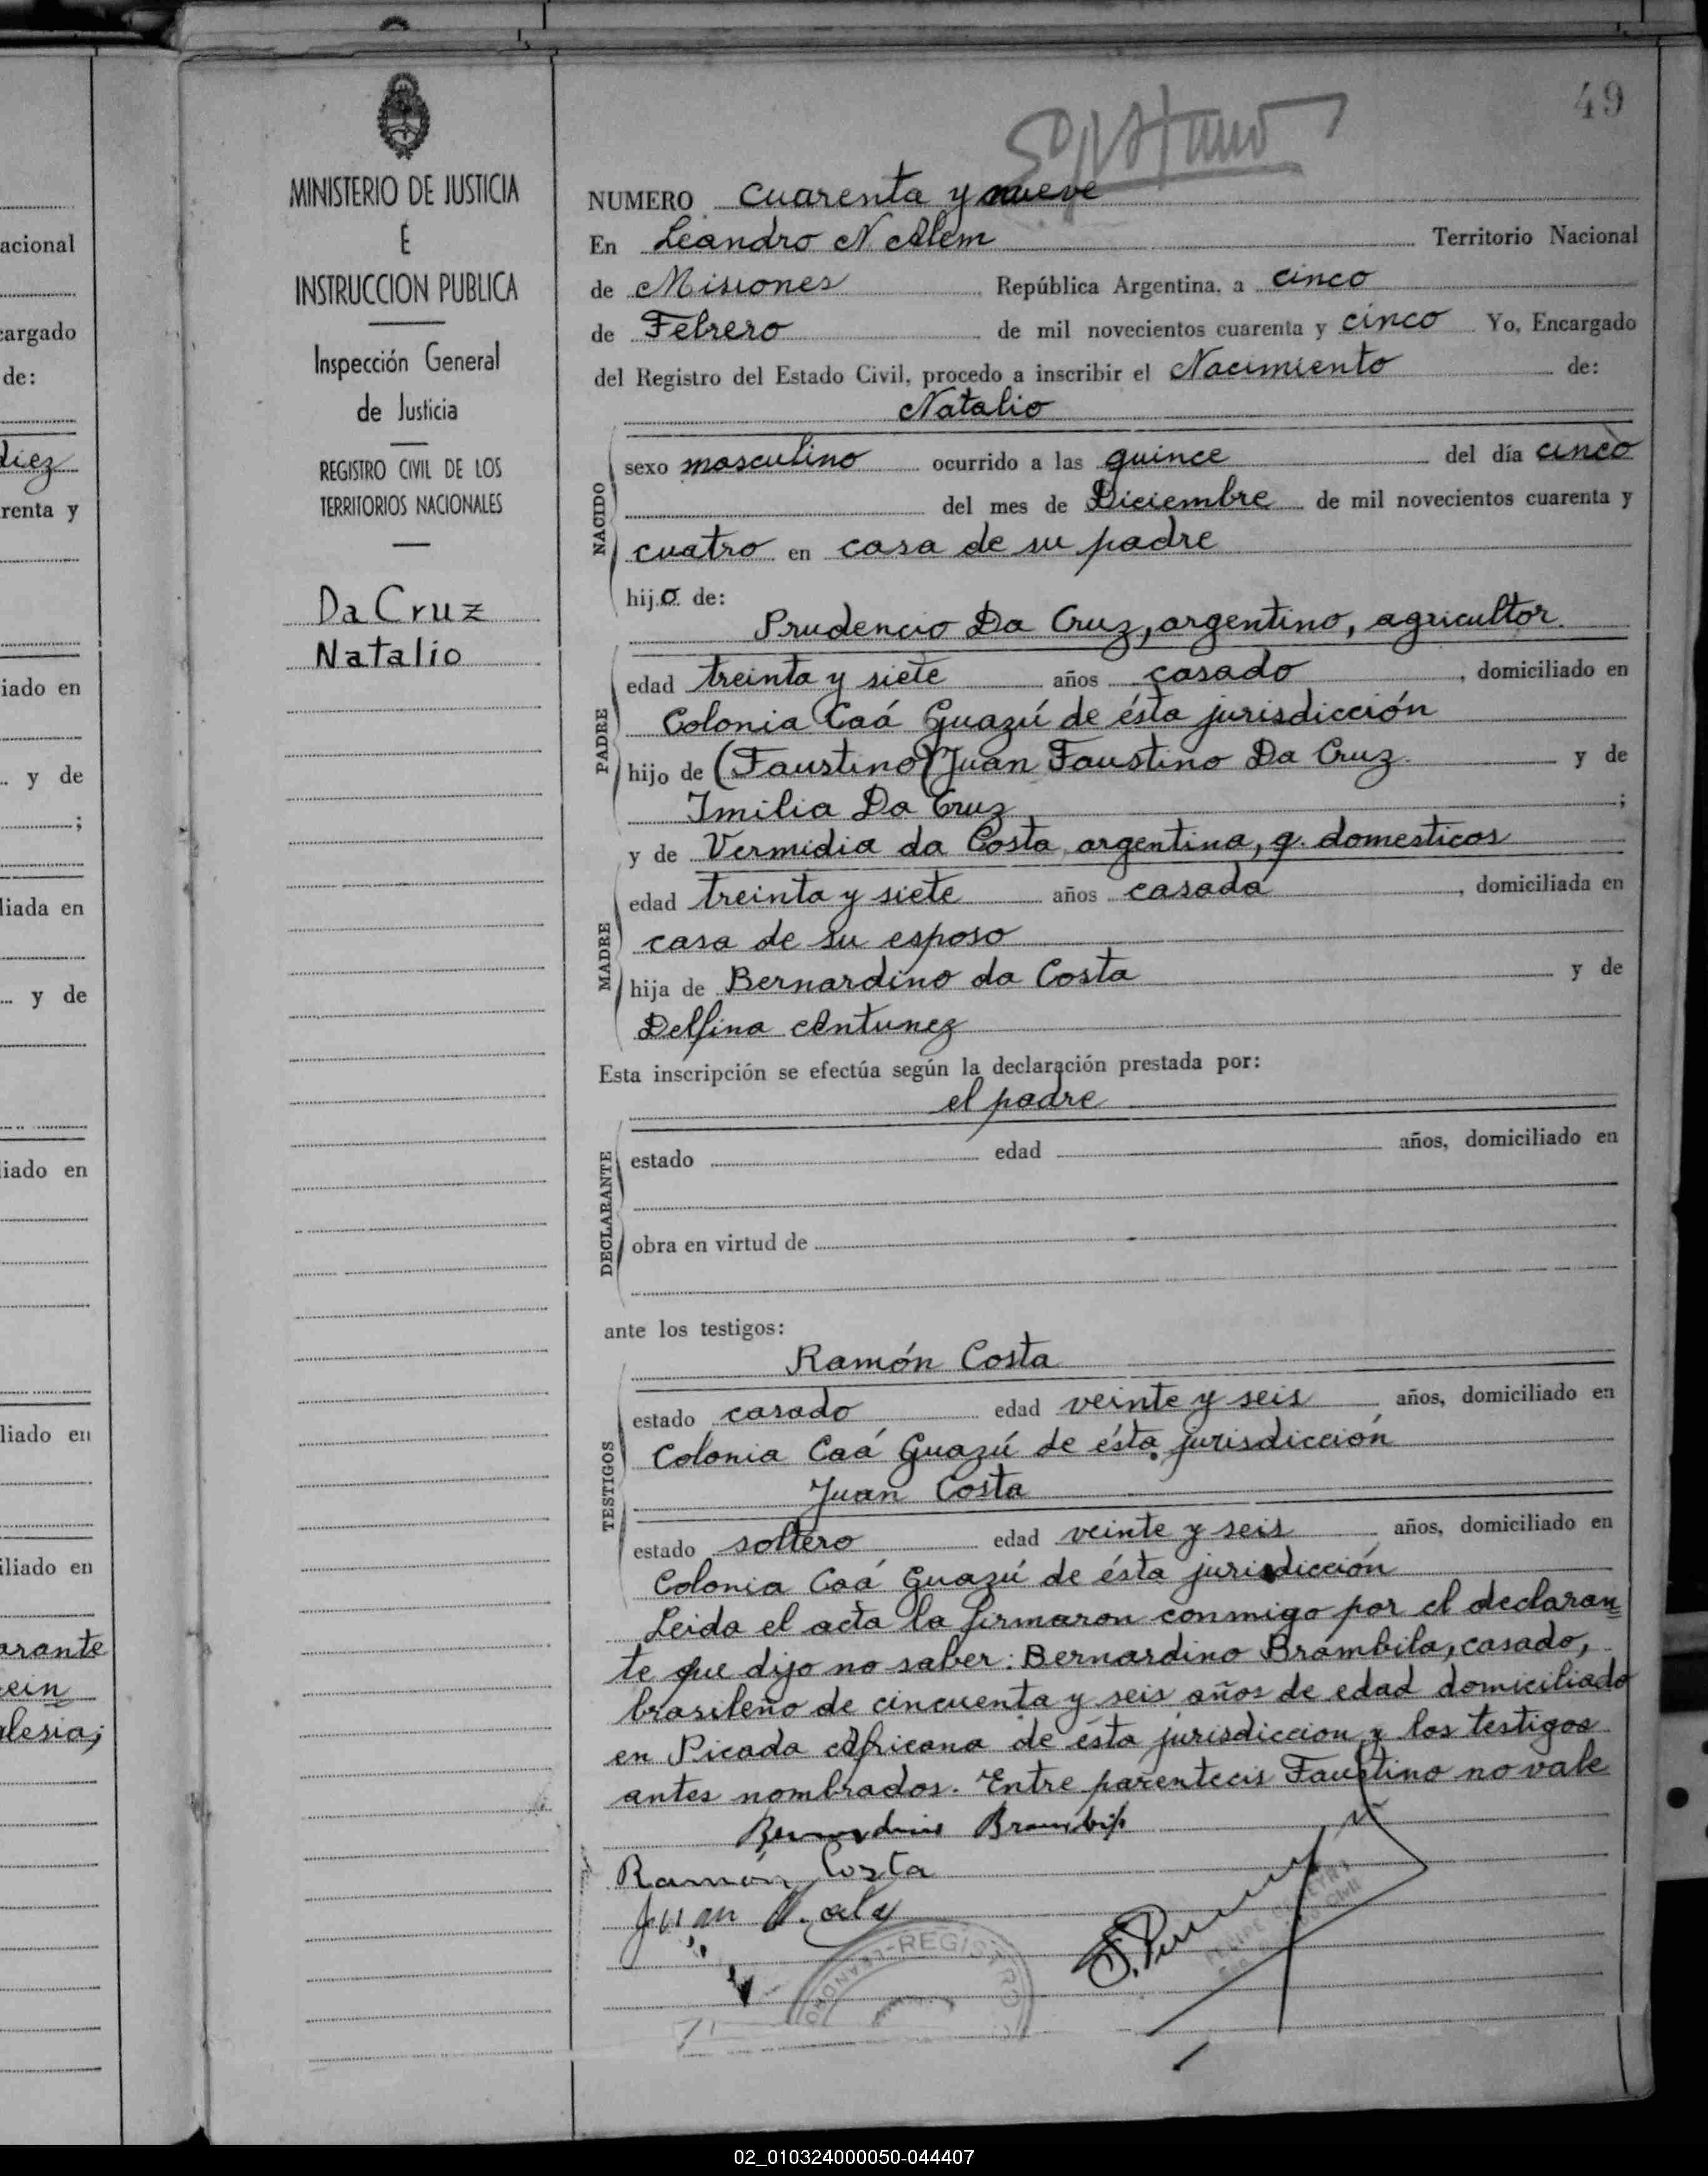 49
NUMERO cuarenta y nueve
MINISTERIO DE JUSTICIA
É
INSTRUCCION PUBLICA
Inspección General
de Justicia
REGISTRO CIVIL DE LOS
TERRITORIOS NACIONALES
Da Cruz
Natalio
En Leandro N Alem Territorio Nacional
de Misiones República Argentina, a cinco
de Febrero de mil novecientos cuarenta y cinco Yo, Encargado
del Registro del Estado Civil, procedo a inscribir el Nacimiento de:
Natalio
NACIDO
sexo masculino ocurrido a las quince del día cinco
del mes de Diciembre de mil novecientos cuarenta y
cuatro en casa de su padre
hijo de:
Prudencio Da Cruz, argentino, agricultor.
PADRE
edad treinta y siete años casado, domiciliado en
Colonia Caá Guazú de ésta jurisdicción
hijo de (Faustino) Juan Faustino Da Cruz y de
Imilia Da Cruz ;
y de Vermidia da Costa argentina, q. domesticos
MADRE
edad treinta y siete años casada, domiciliada en
casa de su esposo
hija de Bernardino da Costa y de
Delfina Antunez
Esta inscripción se efectúa según la declaración prestada por:
el padre
DECLARANTE
estado edad años, domiciliado en
obra en virtud de
ante los testigos:
Ramón Costa
TESTIGOS
estado casado edad veinte y seis años, domiciliado en
Colonia Caá Guazú de ésta jurisdicción
Juan Costa
estado soltero edad veinte y seis años, domiciliado en
Colonia Caá Guazú de ésta jurisdicción
Leida el acta la firmaron conmigo por el declaran
te que dijo no saber: Bernardino Brambila, casado,
brasileño de cincuenta y seis años de edad domiciliado
en Picada Africana de ésta jurisdiccion y los testigos
antes nombrados. Entre parentecis Faustino no vale
Bernardino Brambila
Ramón Costa
Juan
REGISTRO
acional
cargado
de:
diez
renta y
iado en
y de
;
liada en
y de
liado en
liado en
iliado en
arante
ein
lesia;
02_010324000050-044407